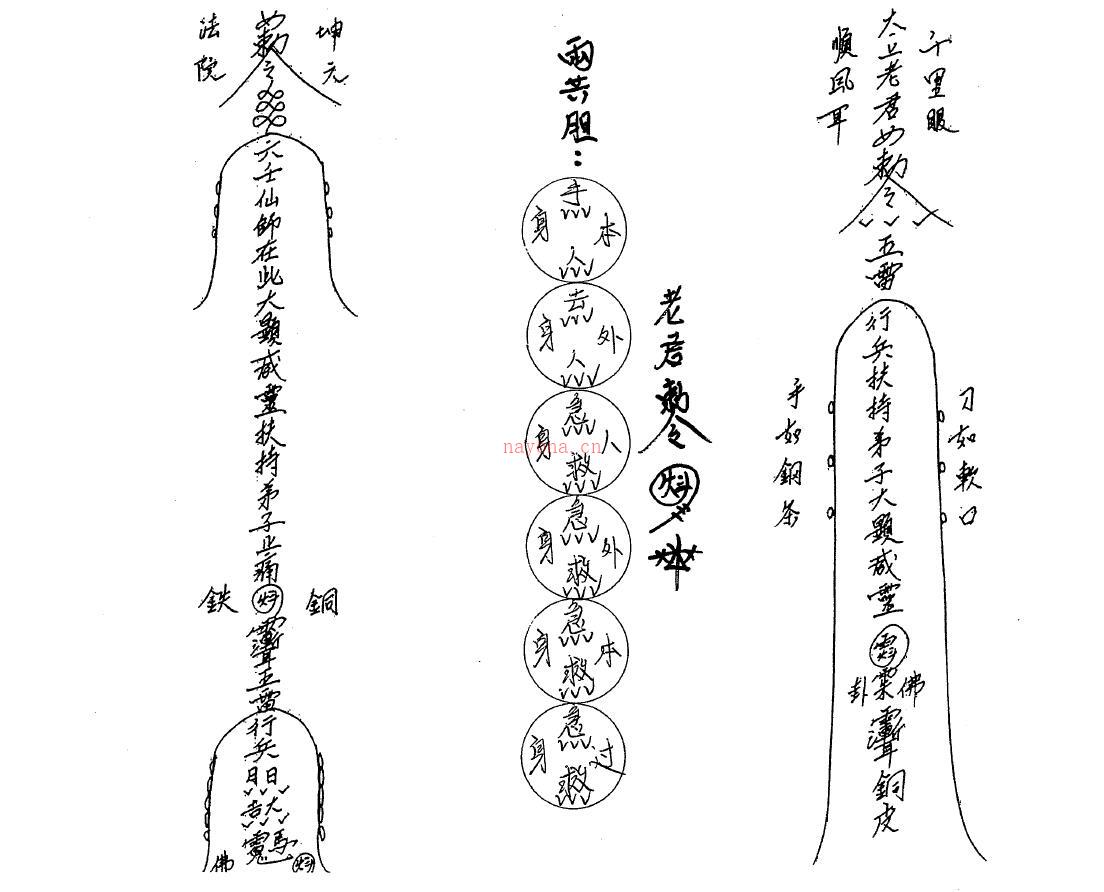 千里眼
順風耳
太上老君勅令
五雷
行兵扶持弟子大顯威靈
佛
卦
銅皮
刀如軟口
手如銅
雨共胆：
手
本
身
人
去
外
身
人
急
人
身
救
急
外
身
救
急
本
身
救
急
过
身
救
老君勅令
坤元
法院
勅令
六壬仙師在此大顯威靈扶持弟子止痛
銅
鉄
五雷行兵
佛
nayona.cn